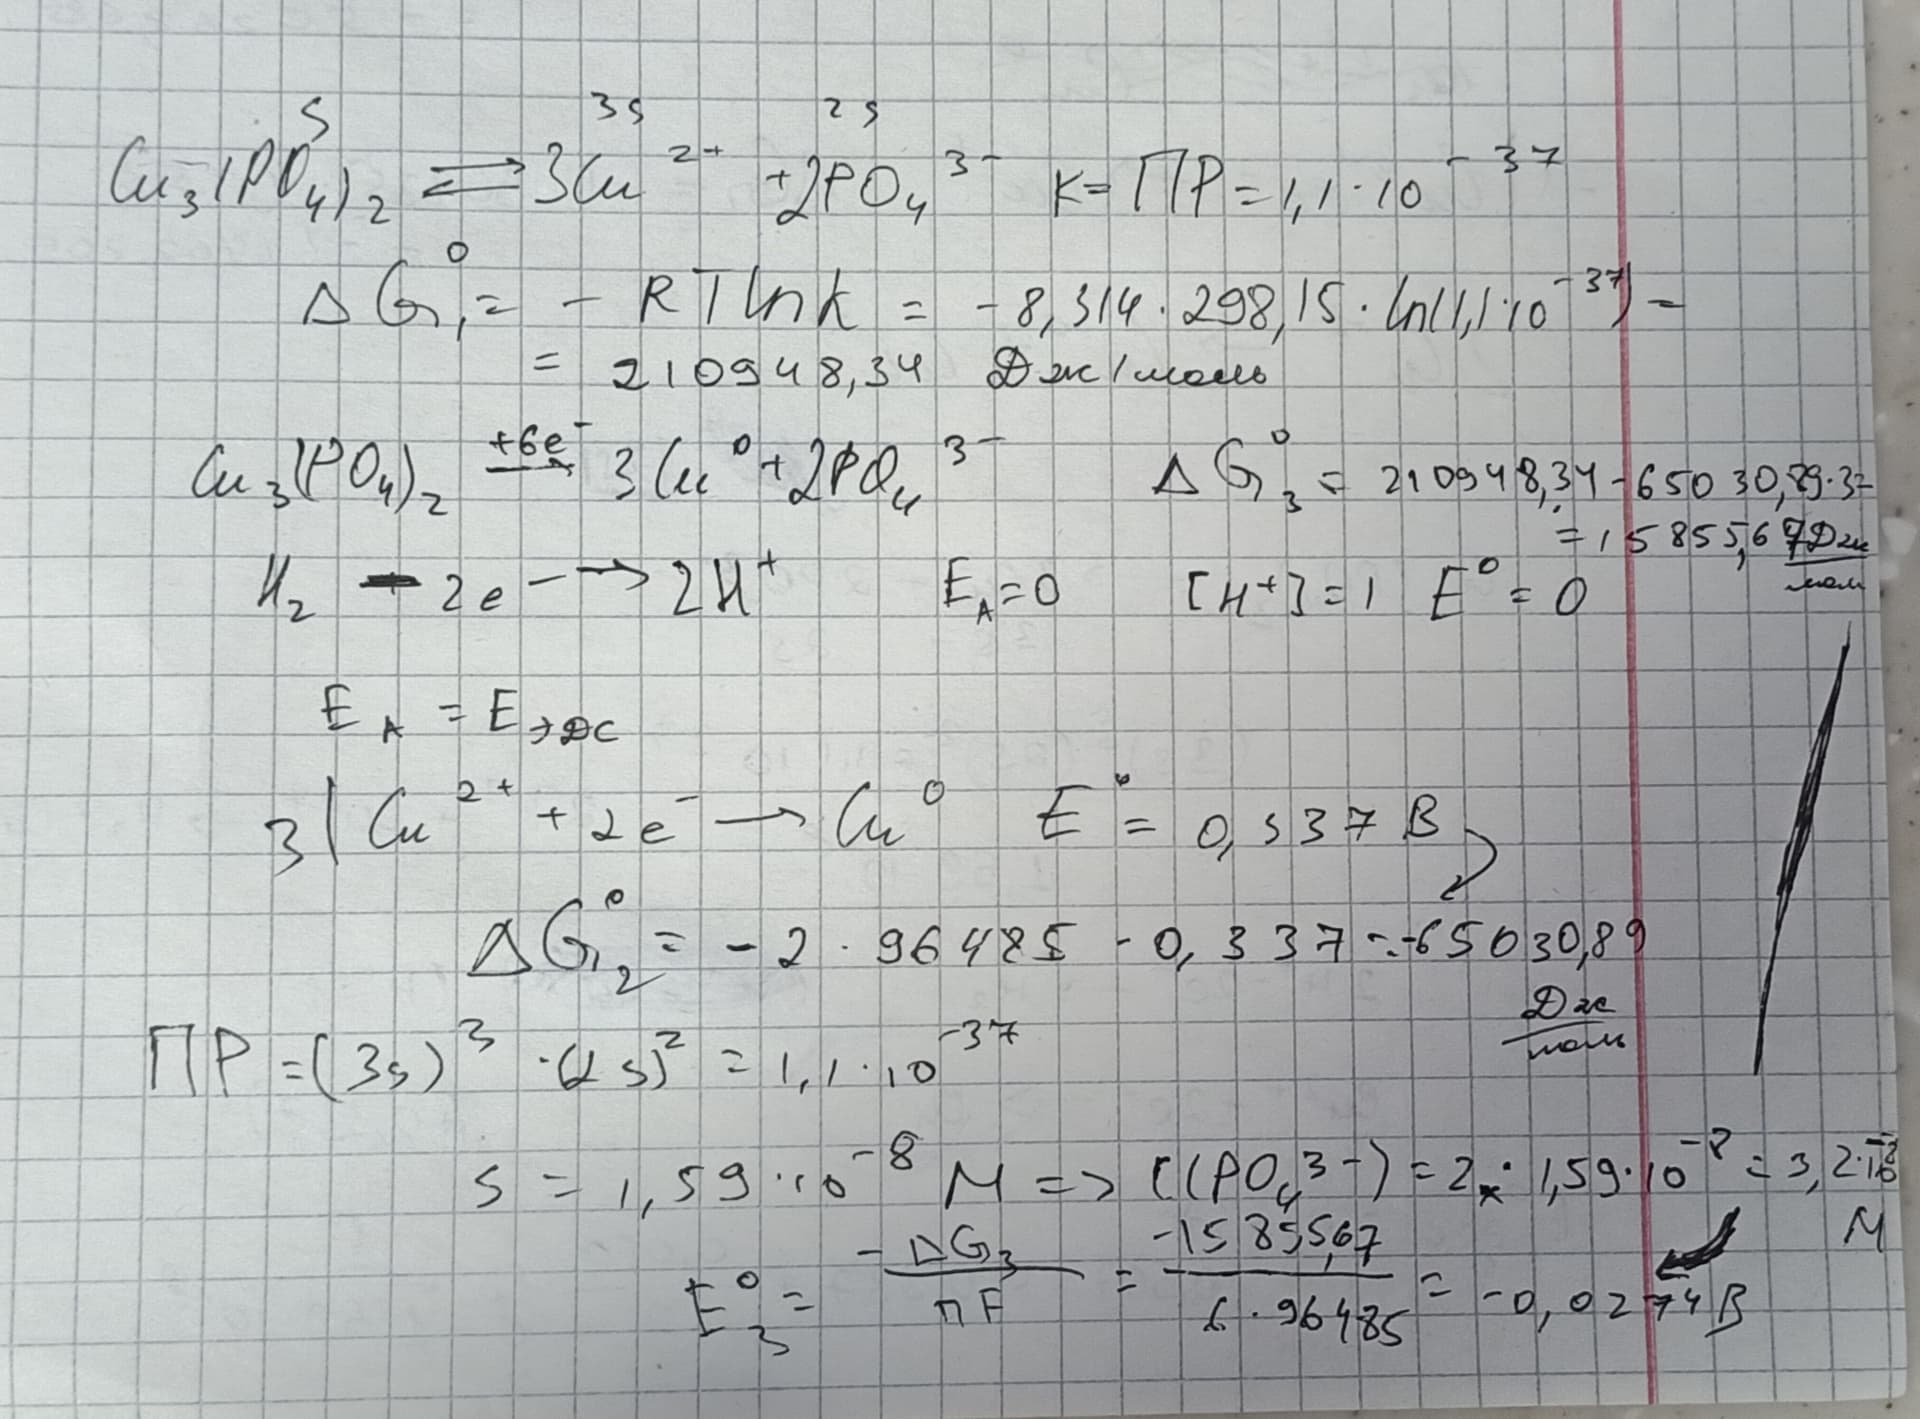 s 3s 2s
Cu₃(PO₄)₂ ⇄ 3Cu²⁺ + 2PO₄³⁻ K = ПР = 1,1·10⁻³⁷
ΔG₁⁰ = - RT ln k = -8,314 · 298,15 · ln(1,1·10⁻³⁷) =
= 210948,34 Дж/моль
Cu₃(PO₄)₂ +6e⁻→ 3Cu⁰ + 2PO₄³⁻ ΔG₃⁰ = 210948,34 - 65030,89·3=
= 15855,67 Дж/моль
H₂ - 2e⁻ → 2H⁺ E_A = 0 [H⁺] = 1 E⁰ = 0
E_A = E_эдс
3 | Cu²⁺ + 2e⁻ → Cu⁰ E⁰ = 0,337 В
ΔG₂⁰ = -2 · 96485 · 0,337 = -65030,89 Дж/моль
ПР = (3s)³ · (2s)² = 1,1·10⁻³⁷
s = 1,59·10⁻⁸ M => C(PO₄³⁻) = 2 · 1,59·10⁻⁸ = 3,2·10⁻⁸ M
E₃⁰ = -ΔG₃/nF = -15855,67/6·96485 = -0,0274 В